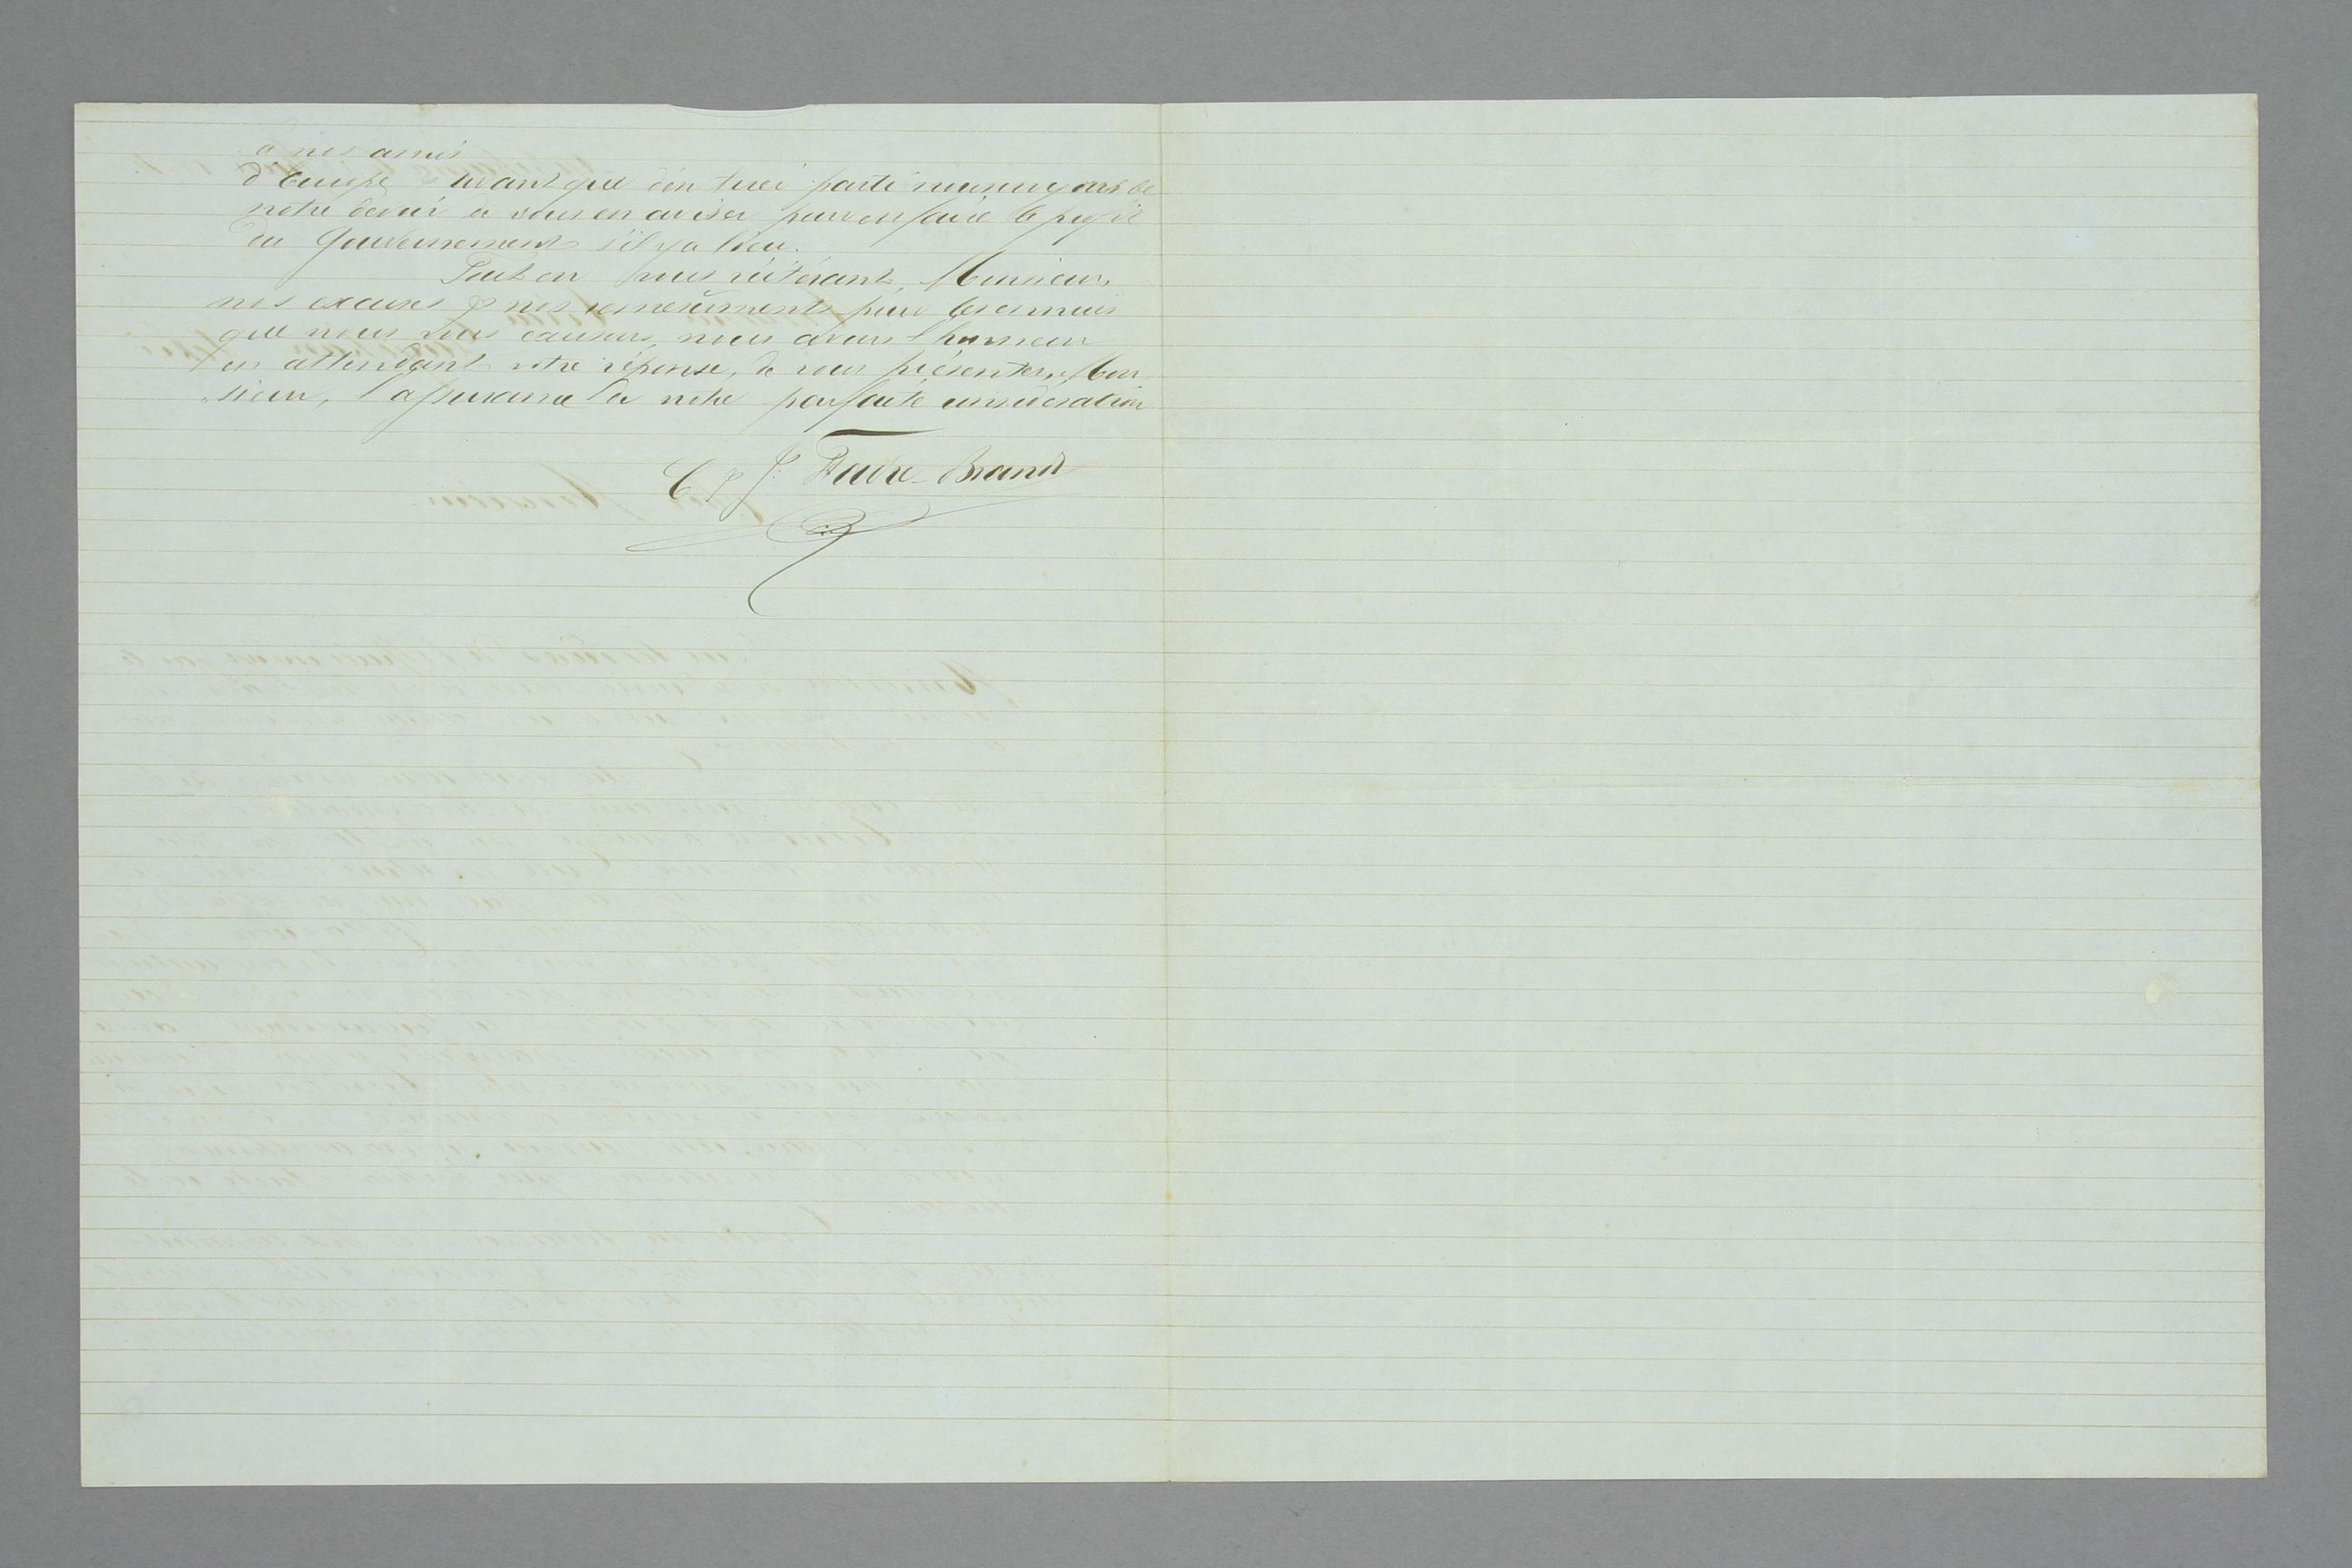 à nos amis
d'Europe avant que d'en tirer parti nous croyons de
notre devoir de vous en aviser pour en faire le profit
du Gouvernement s'il y a lieu.
Tout en vous réitérant, Monsieur,
nos excuses & nos remerciments pour les ennuis
que nous vous causons, nous avons l'honneur
en attendant votre réponse, de vous présenter, Mon
sieur, l'assurance de notre parfaite considération
C & J. Favre-Brandt